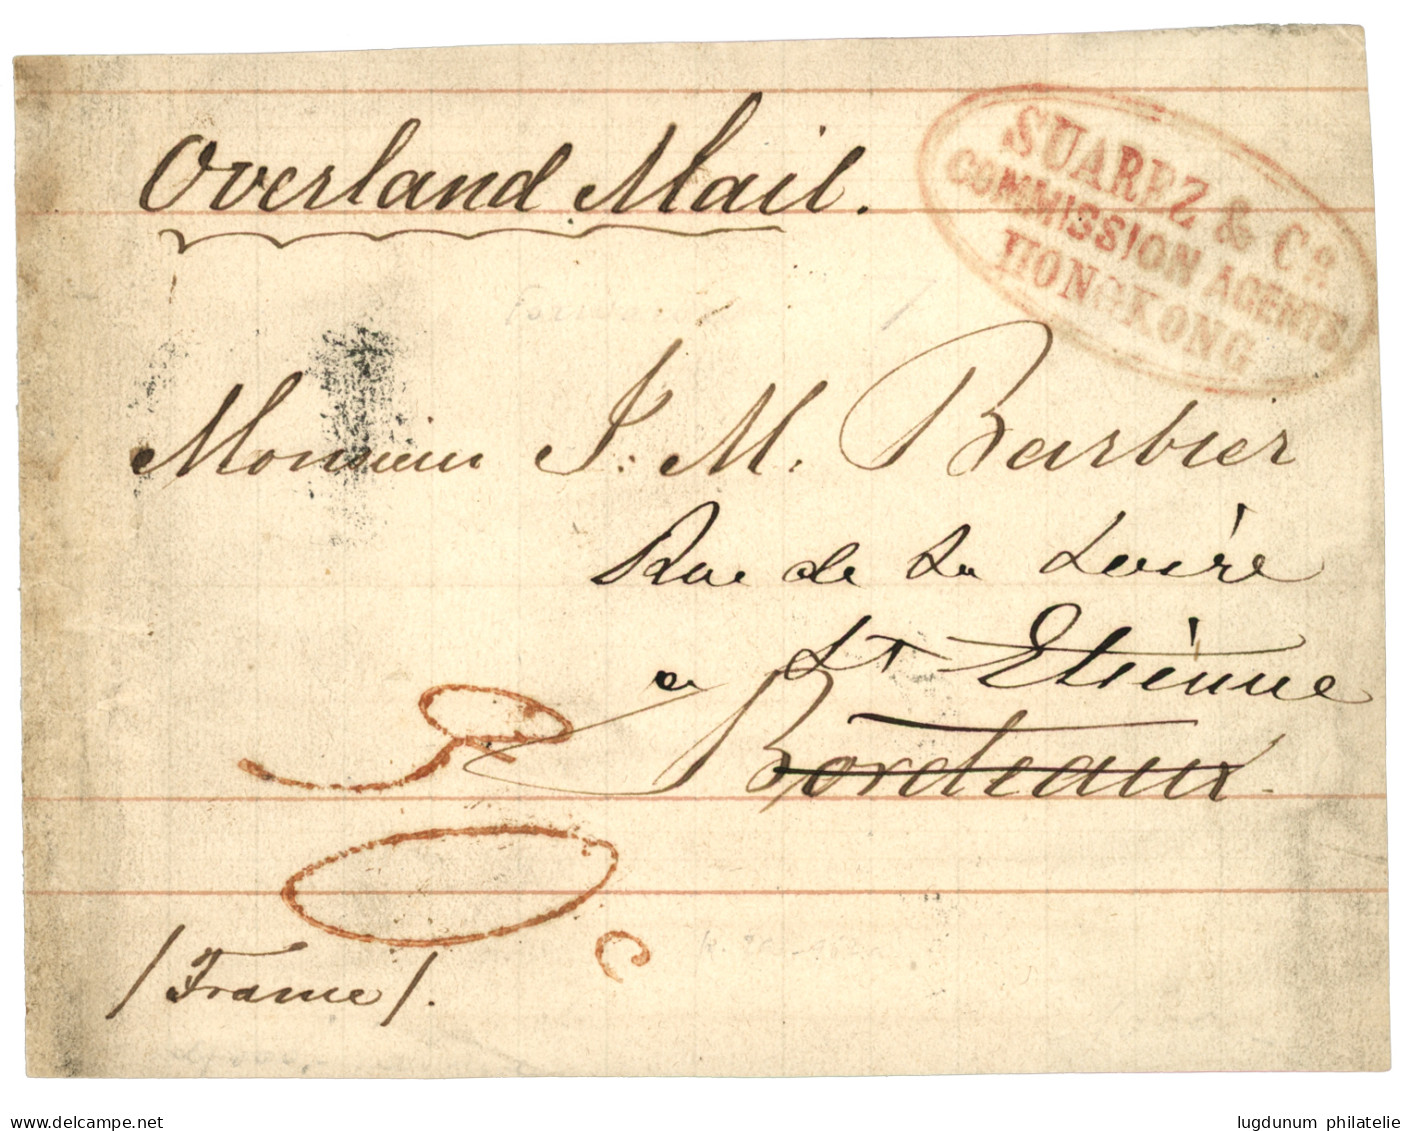 Overland Mail.
SUAREZ & Co.
COMMISSION AGENTS
HONGKONG
Monsieur J. M. Barbier
Rue de La Loire
a St Etienne
Bordeaux.
/France/.
delcampe.net
lugdunum philatelie